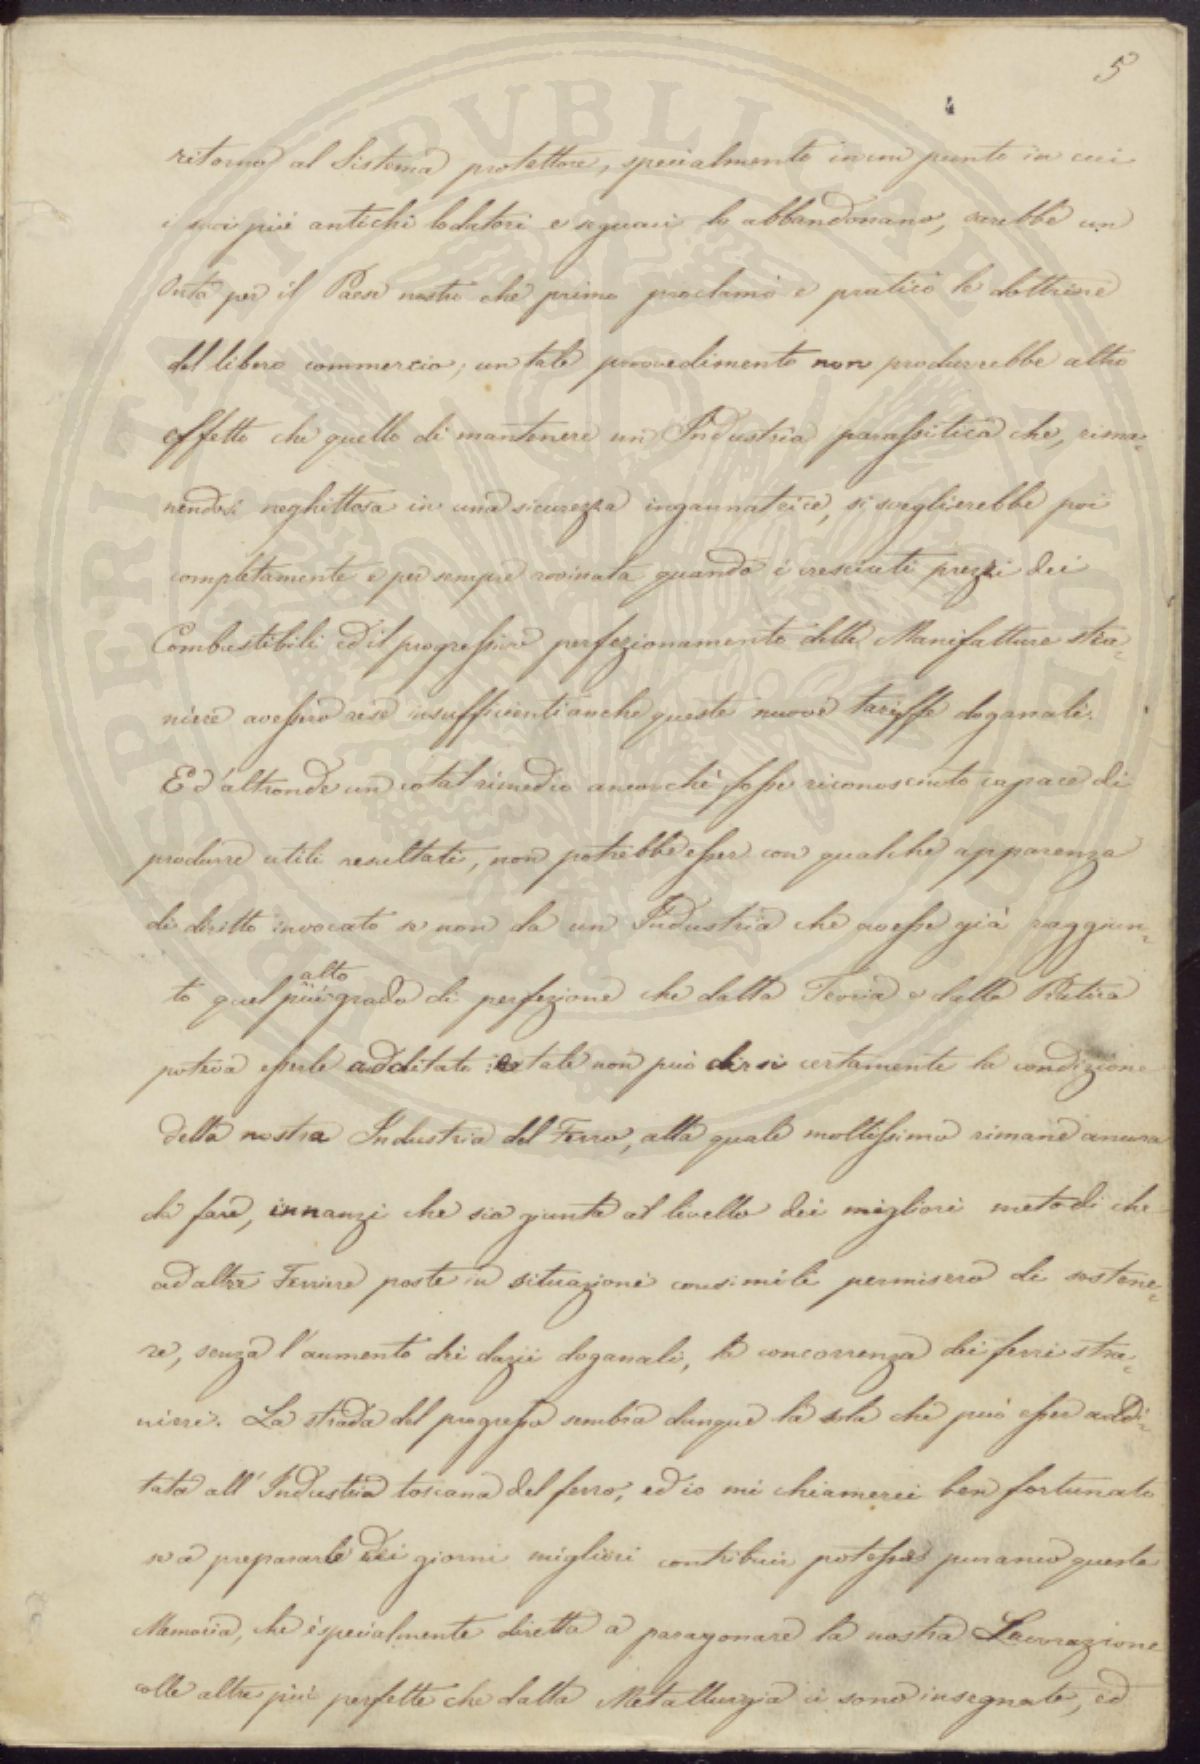 5
ritorno al Sistema protettore, specialmente in un punto in cui
i suoi più antichi lodatori e seguaci lo abbandonano, sarebbe un
Onta per il Paese nostro che primo proclamò e praticò le dottrine
del libero commercio; un tale provvedimento non produrrebbe altro
effetto che quello di mantenere un Industria parassitica che, rima=
nendosi neghittosa in una sicurezza ingannatrice, si sveglierebbe poi
completamente e per sempre rovinata quando i cresciuti prezzi dei
Combustibili ed il progressivo perfezionamento delle Manifatture stra=
niere avessero rese insufficienti anche queste nuove tariffe doganali.
E d'altronde un cotal rimedio ancorchè fosse riconosciuto capace di
produrre utili resultati, non potrebbe esser con qualche apparenza
di diritto invocato se non da un Industria che avesse già raggiun=
to quel più alto grado di perfezione che dalla Teoria e dalla Pratica
poteva esserle additato: e tale non può dirsi certamente la condizione
della nostra Industria del Ferro, alla quale moltissimo rimane ancora
da fare, innanzi che sia giunta al livello dei migliori metodi che
ad altre Ferriere poste in situazioni consimili permisero di sostene=
re, senza l'aumento dei dazii doganali, la concorrenza dei ferri stra=
nieri. La strada del progresso sembra dunque la sola che può esser addi=
tata all'Industria toscana del ferro, ed io mi chiamerei ben fortunato
se a prepararle dei giorni migliori contribuir potesse puranco questa
Memoria, che è specialmente diretta a paragonare la nostra Lavorazione
colle altre più perfette che dalla Metallurgia ci sono insegnate, ed
PROSPERITATI PVBLICAE AVGENDAE